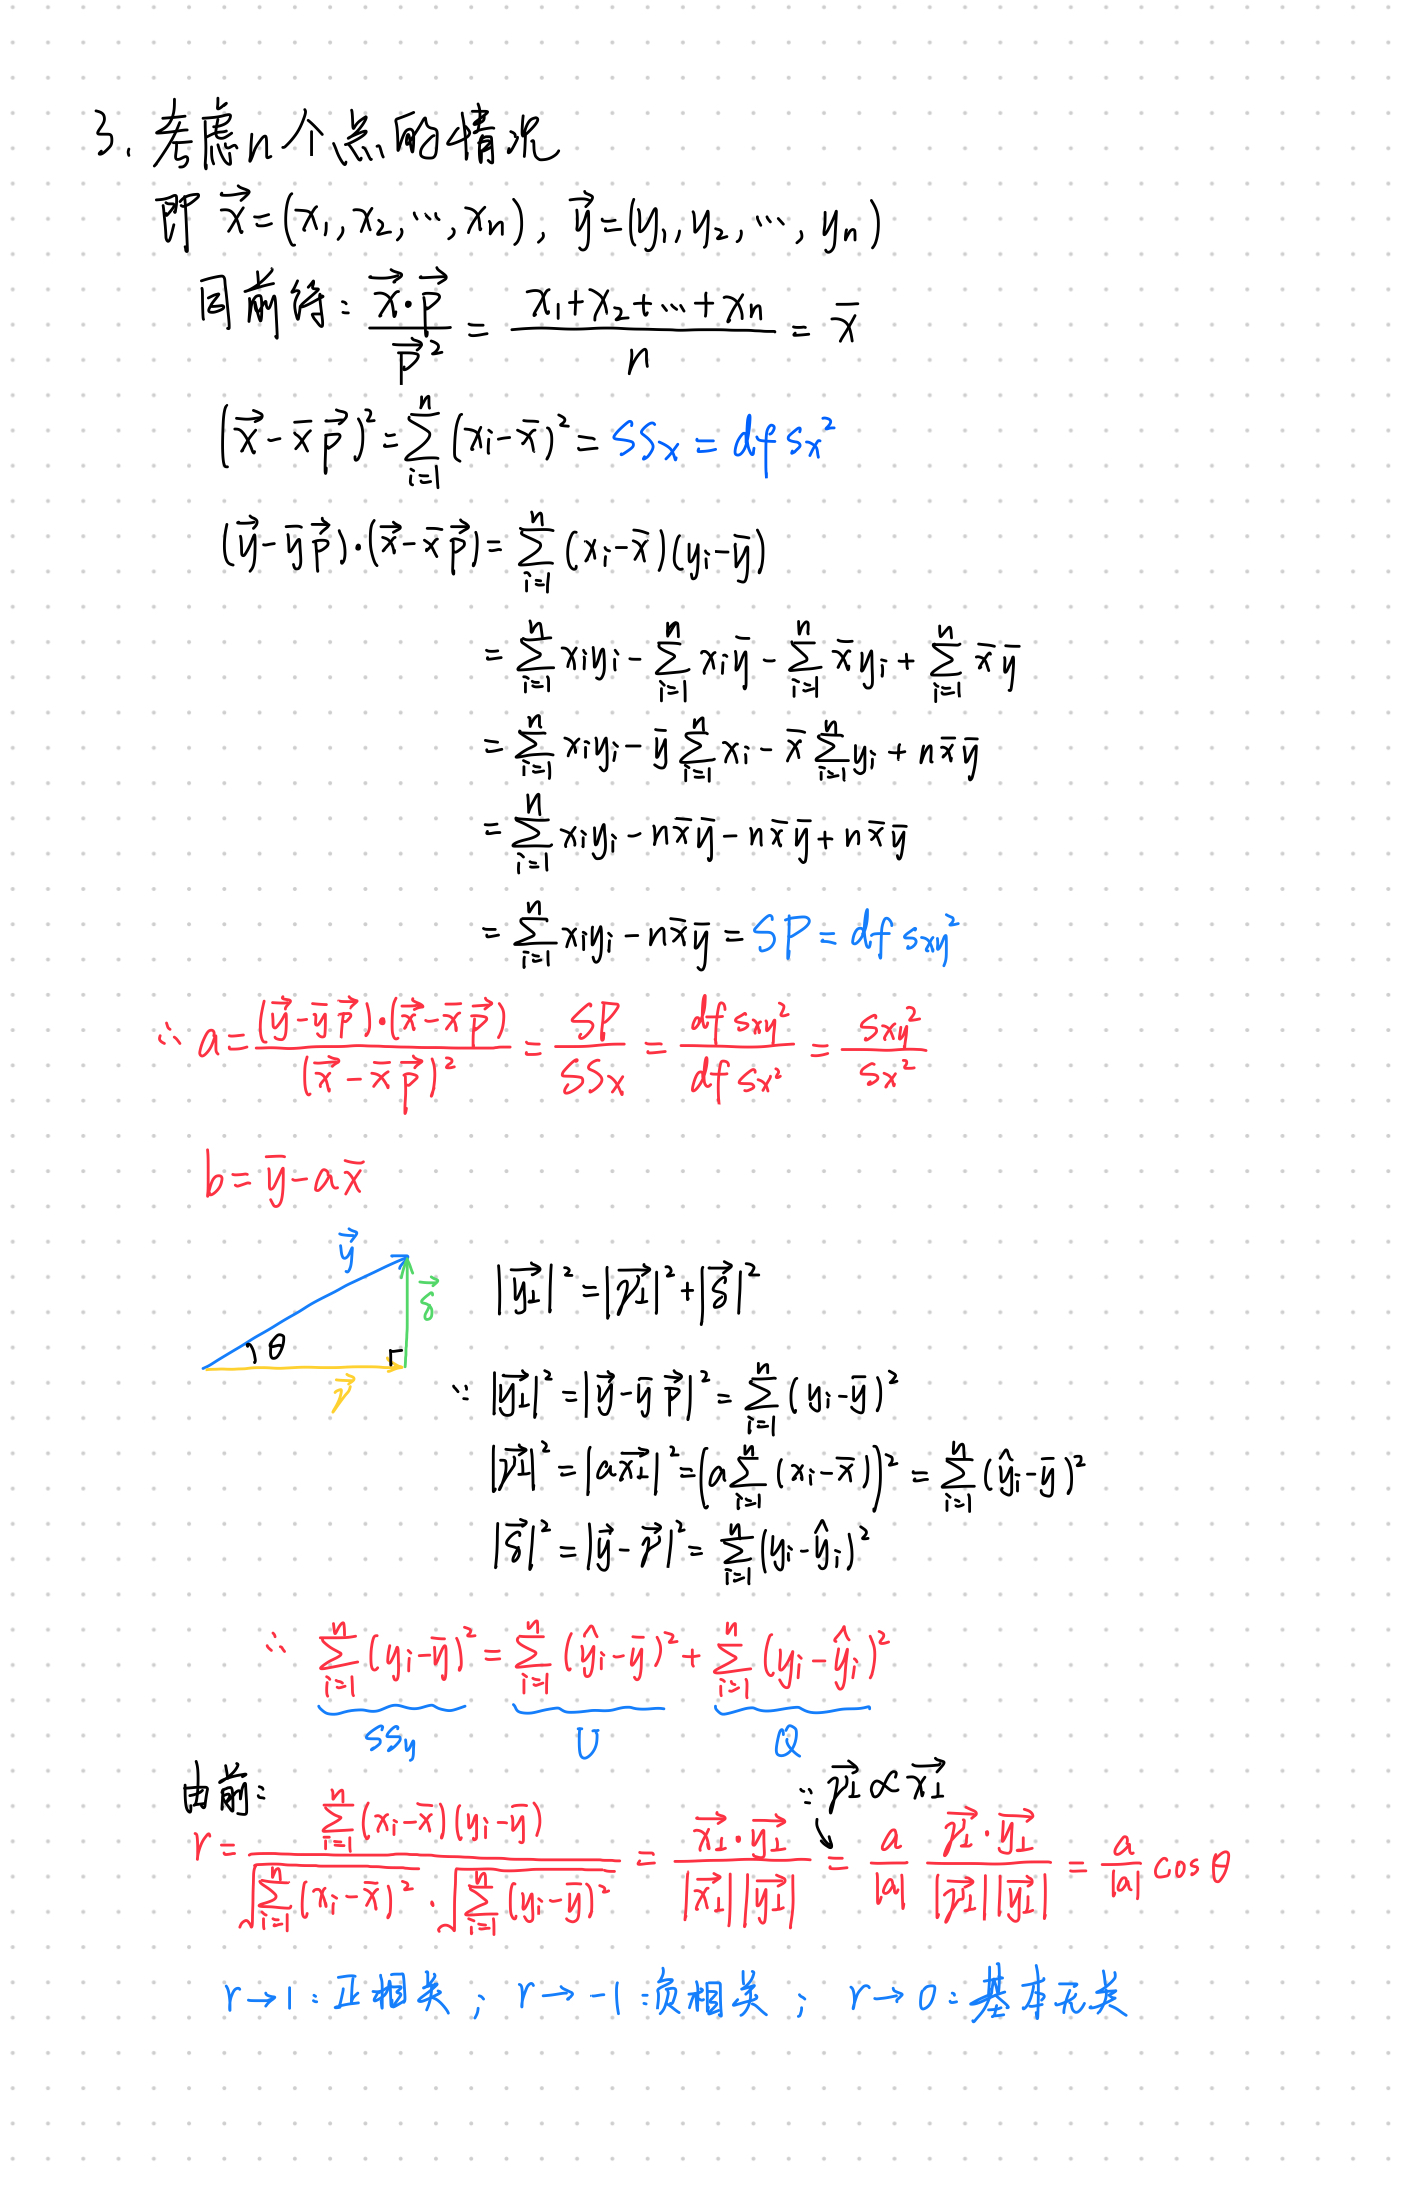 3. 考虑n个点的情况
即 \vec{x}=(x₁,x₂,⋯,xₙ), \vec{y}=(y₁,y₂,⋯,yₙ)
同前得: \frac{\vec{x}·\vec{p}}{\vec{p}^2} = \frac{x_1+x_2+⋯+x_n}{n} = \bar{x}
(\vec{x}-\bar{x}\vec{p})^2 = \sum_{i=1}^{n}(x_i-\bar{x})^2 = SS_x = df s_x^2
(\vec{y}-\bar{y}\vec{p})·(\vec{x}-\bar{x}\vec{p}) = \sum_{i=1}^{n}(x_i-\bar{x})(y_i-\bar{y})
= \sum_{i=1}^{n}x_iy_i - \sum_{i=1}^{n}x_i\bar{y} - \sum_{i=1}^{n}\bar{x}y_i + \sum_{i=1}^{n}\bar{x}\bar{y}
= \sum_{i=1}^{n}x_iy_i - \bar{y}\sum_{i=1}^{n}x_i - \bar{x}\sum_{i=1}^{n}y_i + n\bar{x}\bar{y}
= \sum_{i=1}^{n}x_iy_i - n\bar{x}\bar{y} - n\bar{x}\bar{y} + n\bar{x}\bar{y}
= \sum_{i=1}^{n}x_iy_i - n\bar{x}\bar{y} = SP = df s_{xy}^2
∴ a = \frac{(\vec{y}-\bar{y}\vec{p})·(\vec{x}-\bar{x}\vec{p})}{(\vec{x}-\bar{x}\vec{p})^2} = \frac{SP}{SS_x} = \frac{df s_{xy}^2}{df s_x^2} = \frac{s_{xy}^2}{s_x^2}
b = \bar{y}-a\bar{x}
\vec{y}
\vec{δ}
θ
\vec{γ}
|\vec{y_⊥}|^2 = |\vec{γ_⊥}|^2 + |\vec{δ}|^2
∵ |\vec{y_⊥}|^2 = |\vec{y}-\bar{y}\vec{p}|^2 = \sum_{i=1}^{n}(y_i-\bar{y})^2
|\vec{γ_⊥}|^2 = |a\vec{x_⊥}|^2 = (a\sum_{i=1}^{n}(x_i-\bar{x}))^2 = \sum_{i=1}^{n}(\hat{y}_i-\bar{y})^2
|\vec{δ}|^2 = |\vec{y}-\vec{γ}|^2 = \sum_{i=1}^{n}(y_i-\hat{y}_i)^2
∴ \sum_{i=1}^{n}(y_i-\bar{y})^2 = \sum_{i=1}^{n}(\hat{y}_i-\bar{y})^2 + \sum_{i=1}^{n}(y_i-\hat{y}_i)^2
SS_y U Q
由前:
∵ \vec{γ_⊥} ∝ \vec{x_⊥}
r = \frac{\sum_{i=1}^{n}(x_i-\bar{x})(y_i-\bar{y})}{\sqrt{\sum_{i=1}^{n}(x_i-\bar{x})^2}·\sqrt{\sum_{i=1}^{n}(y_i-\bar{y})^2}} = \frac{\vec{x_⊥}·\vec{y_⊥}}{|\vec{x_⊥}||\vec{y_⊥}|} = \frac{a}{|a|}\frac{\vec{γ_⊥}·\vec{y_⊥}}{|\vec{γ_⊥}||\vec{y_⊥}|} = \frac{a}{|a|}cosθ
r→1:正相关; r→-1:负相关; r→0:基本无关